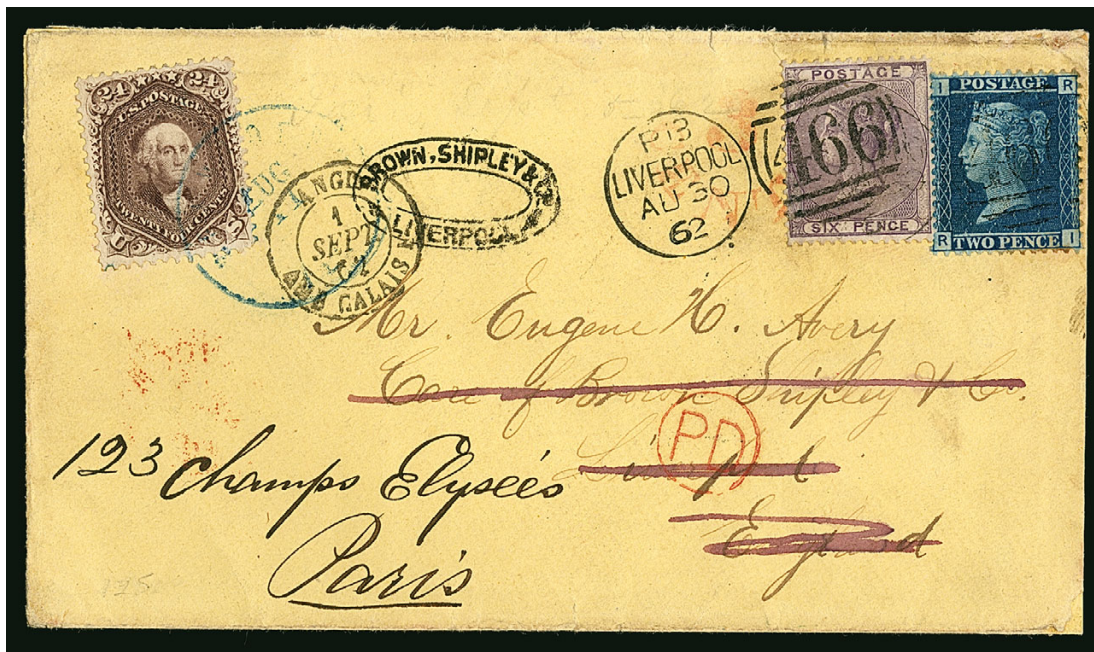 24 24
U.S. POSTAGE
TWENTY FOUR CENTS
U S
AUG
ANGL.
1
SEPT
62
AMB CALAIS
BROWN, SHIPLEY & Co
LIVERPOOL
P 13
LIVERPOOL
AU 30
62
466
POSTAGE
SIX PENCE
I POSTAGE R
R TWO PENCE I
Mr. Eugene H. Avery
Care of Brown Shipley & Co.
Liverpool
England
PD
123 Champs Elyseés
Paris